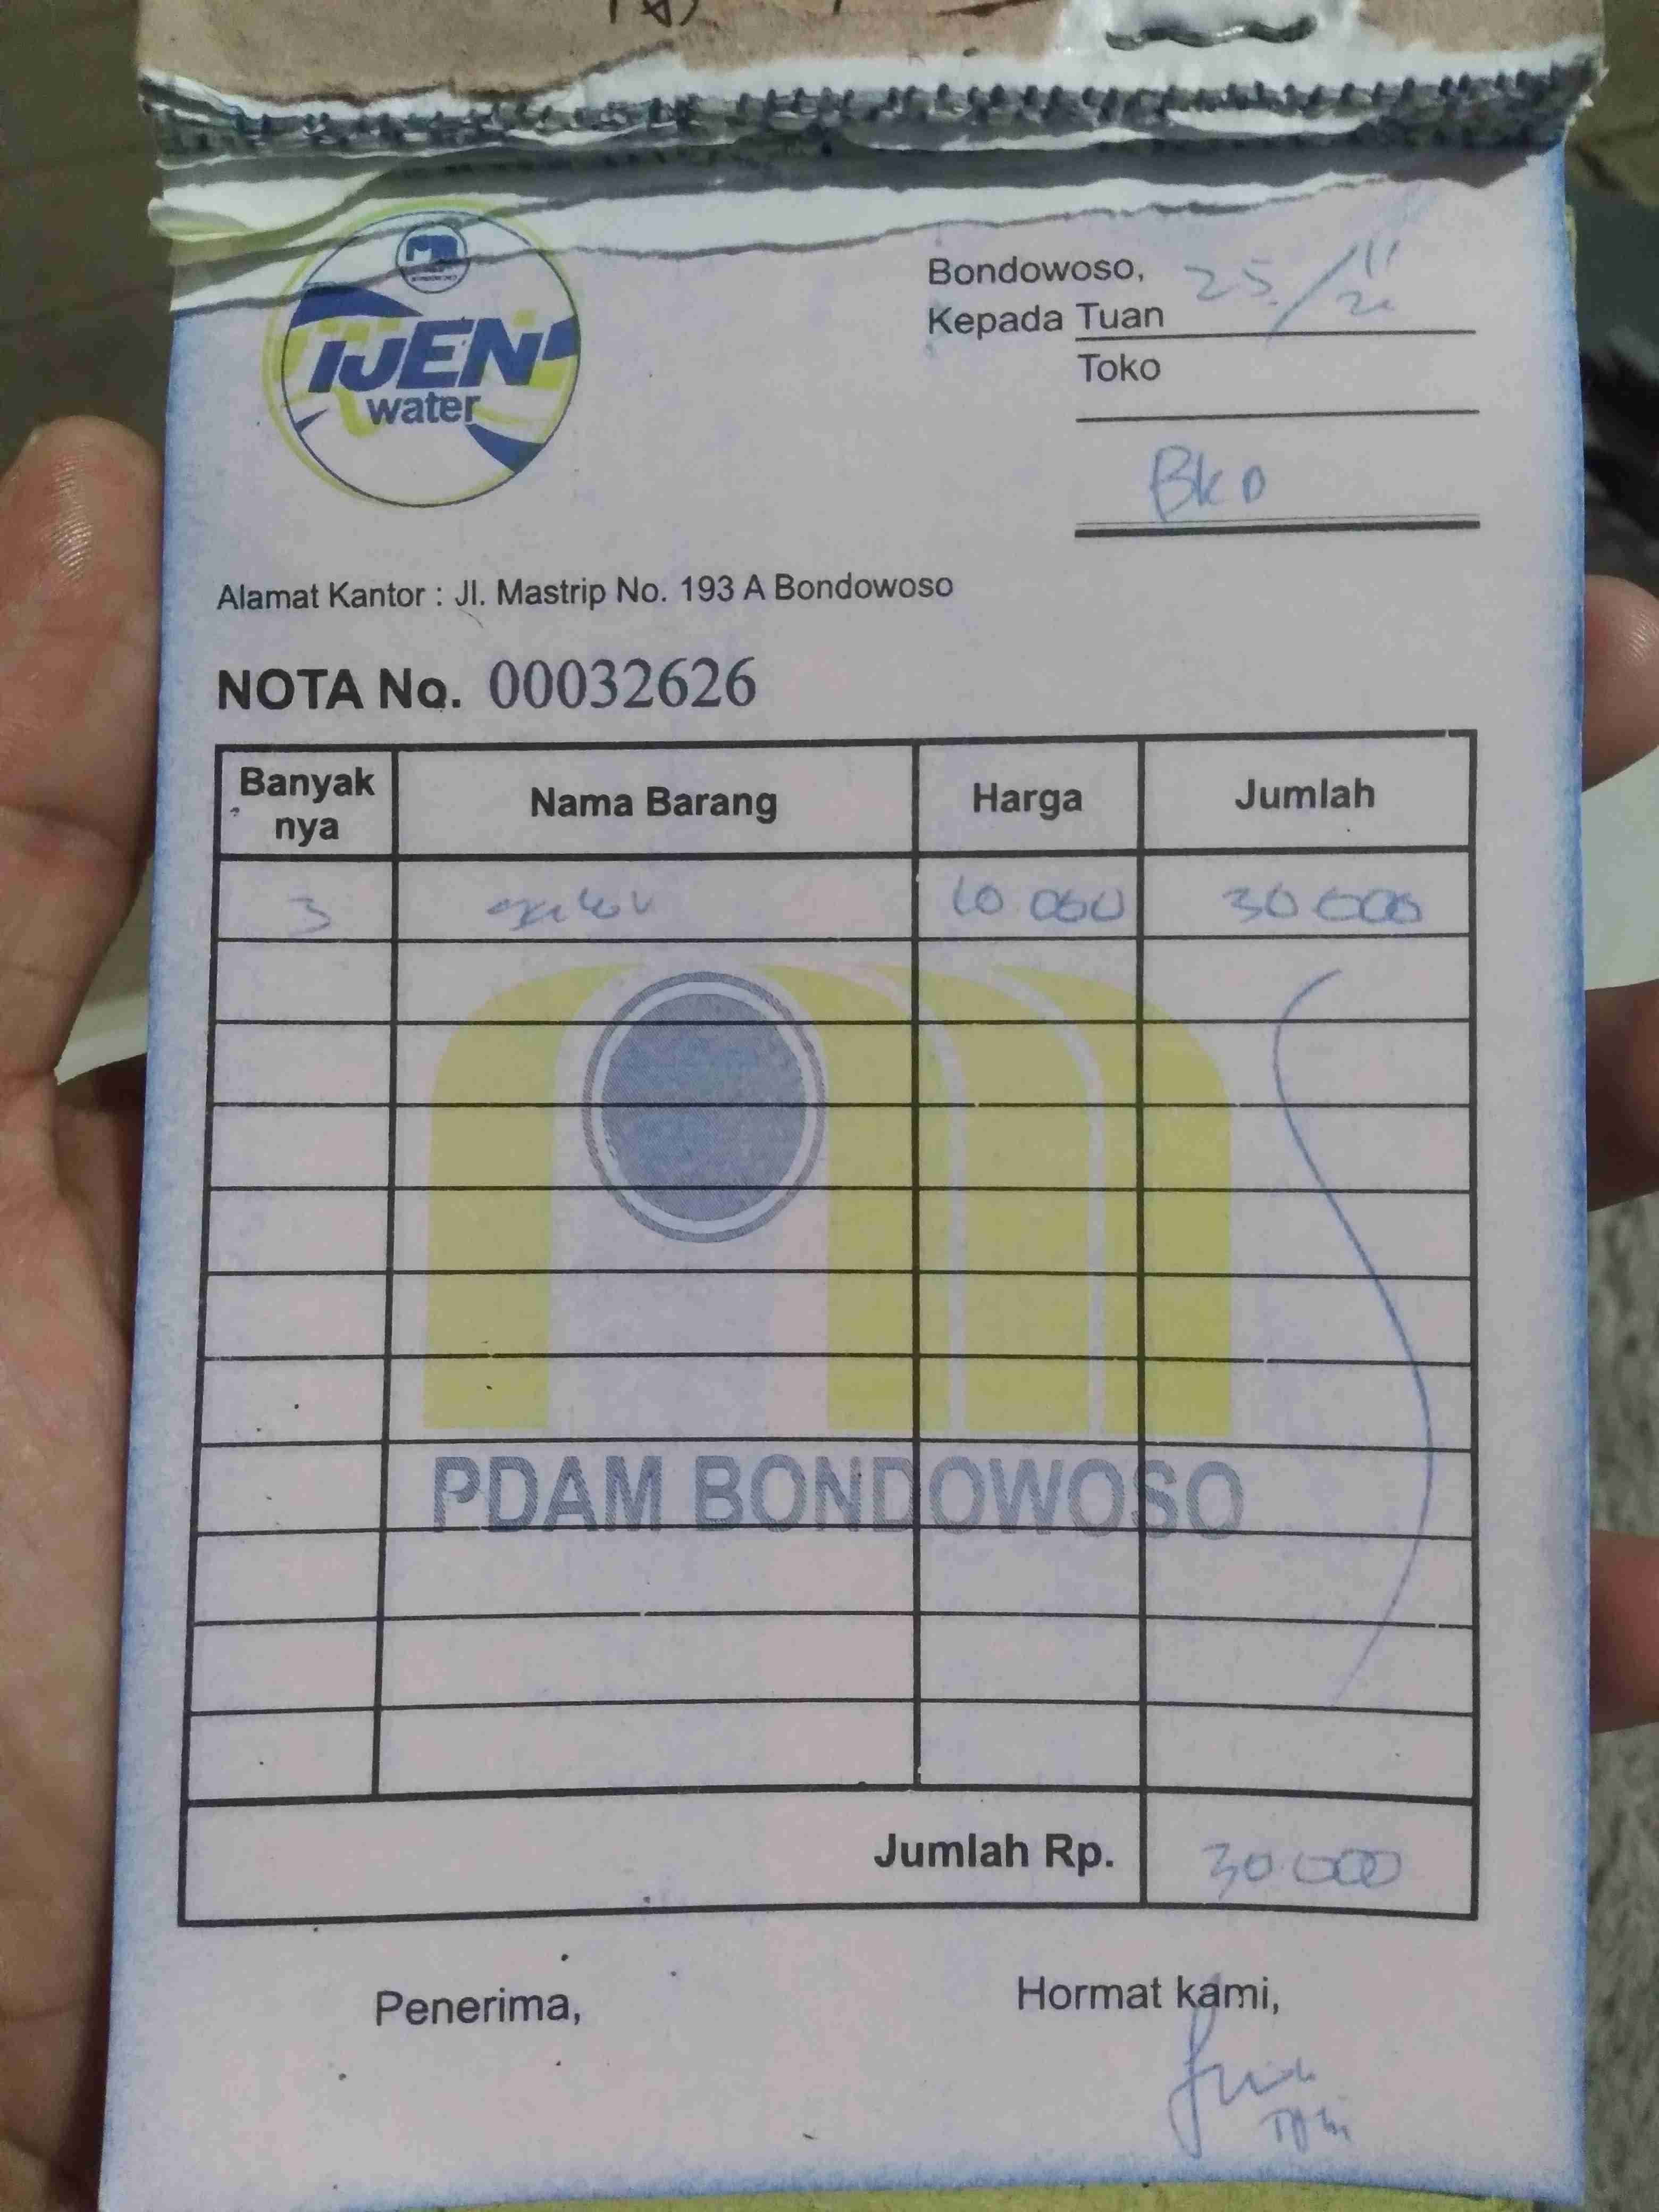 IJEN
water
Bondowoso, 25/11
Kepada Tuan
Toko
BKD
Alamat Kantor : Jl. Mastrip No. 193 A Bondowoso
NOTA No. 00032626
Banyak nya Nama Barang Harga Jumlah
3 10 000 30 000
PDAM BONDOWOSO
Jumlah Rp. 30.000
Penerima, Hormat kami,